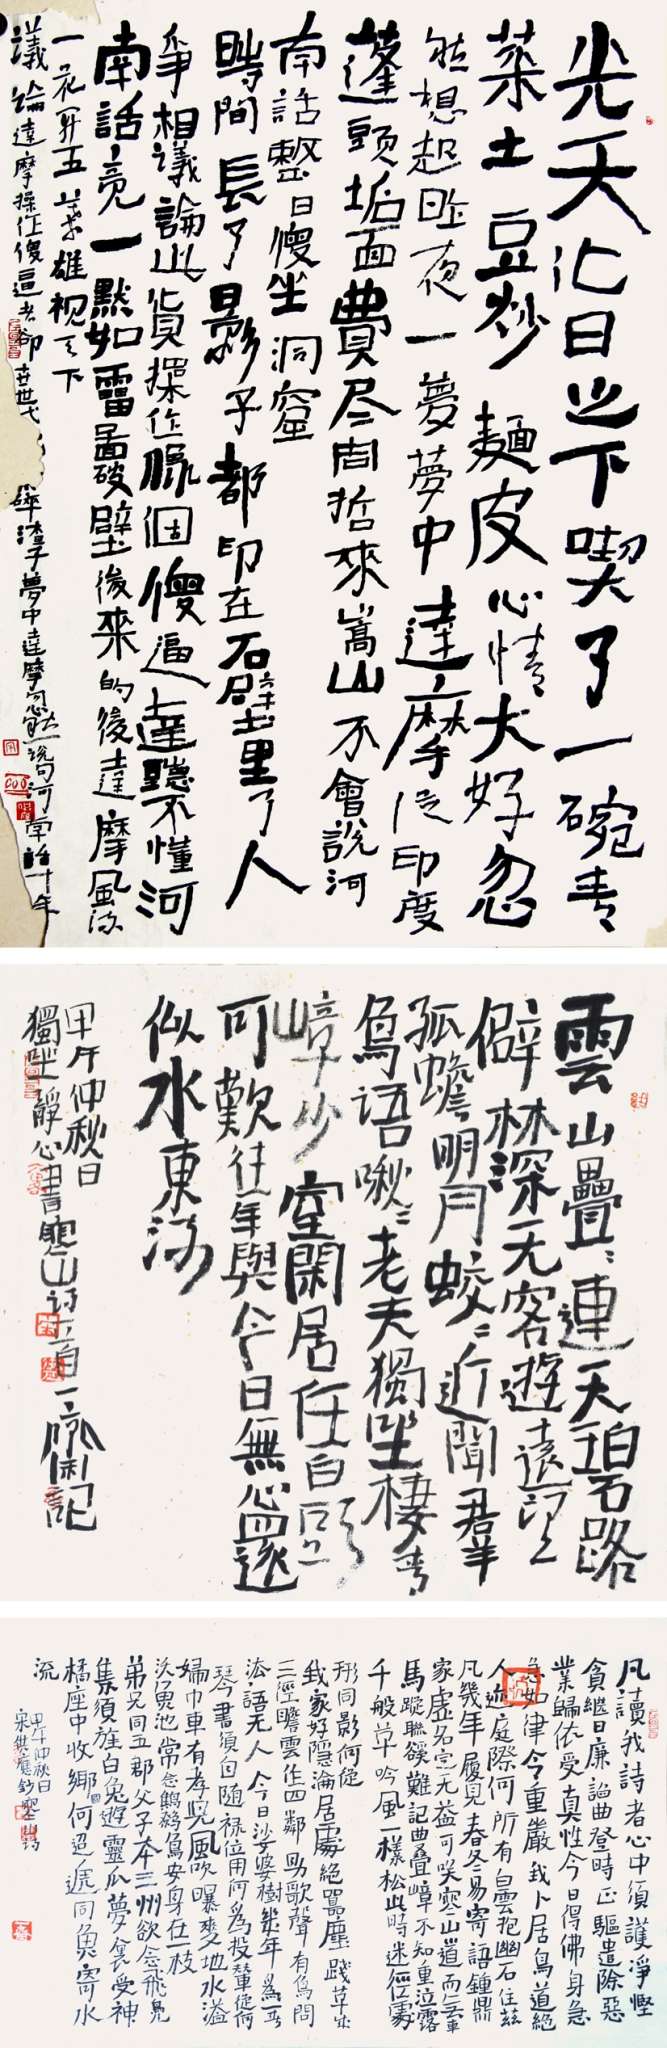 光天化日之下喫了一碗青
菜土豆炒麵皮心情大好忽
然想起昨夜一夢夢中達摩從印度
蓬頭垢面費尽周折來嵩山不會說河
南話整日傻坐洞窟
時間長了影子都印在石壁里了人
爭相議論此貨操作脲個傻逼達聽不懂河
南話竟一默如雷面破壁後來的後達摩風流
一花開五葉雄視天下
議論達摩操作傻逼者卻
渣子夢中達摩忽然說句河南話
雲山疊々連天碧路
僻林深无客遊遠望
孤蟾明月皎々近聞羣
鳥語啾々老夫獨坐棲青
嶂少室閑居任白頭
可歎往年與今日無心還
似水東流
甲午仲秋日
獨坐靜心書寒山詩
凡讀我詩者心中須護淨慳
貪繼日廉諂曲登時正驅遣除惡
業歸依受真性今日得佛身急
急如律令重巖我卜居鳥道絕
人迹庭際何所有白雲抱幽石住茲
凡幾年屢見春冬易寄語鐘鼎
家虛名定无益可笑寒山道而无車
馬蹤聯谿難記曲疊嶂不知重泣露
千般草吟風一樣松此時迷徑處
形問影何從
我家好隱淪居處絕囂塵踐草成
三徑瞻雲作四鄰助歌聲有鳥問
法語无人今日娑婆樹幾年為一春
琴書須自隨祿位用何為投輦從何
婦巾車有孝兒風吹曝麥地水溢
沃魚池常念鷦鷯鳥安身在一枝
弟兄同五郡父子本三州欲念飛鳧
集須旌白兔遊靈瓜夢裏受神
橘座中收鄉國何迢遞同魚寄水
流
甲午仲秋日